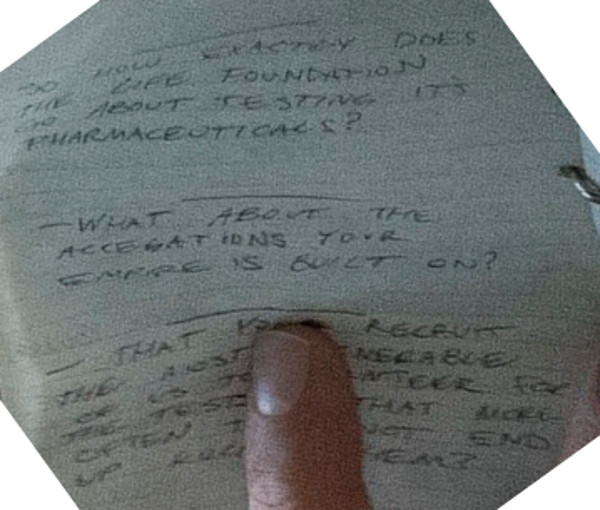 SO HOW EXACTLY DOES
THE LIFE FOUNDATION
GO ABOUT TESTING ITS
PHARMACEUTICALS?
— WHAT ABOUT THE
ALLEGATIONS YOUR
EMPIRE IS BUILT ON?
— THAT RECRUIT
THE MOST
OF US TO FOR
THE TEST THAT MORE
OFTEN NOT END
UP